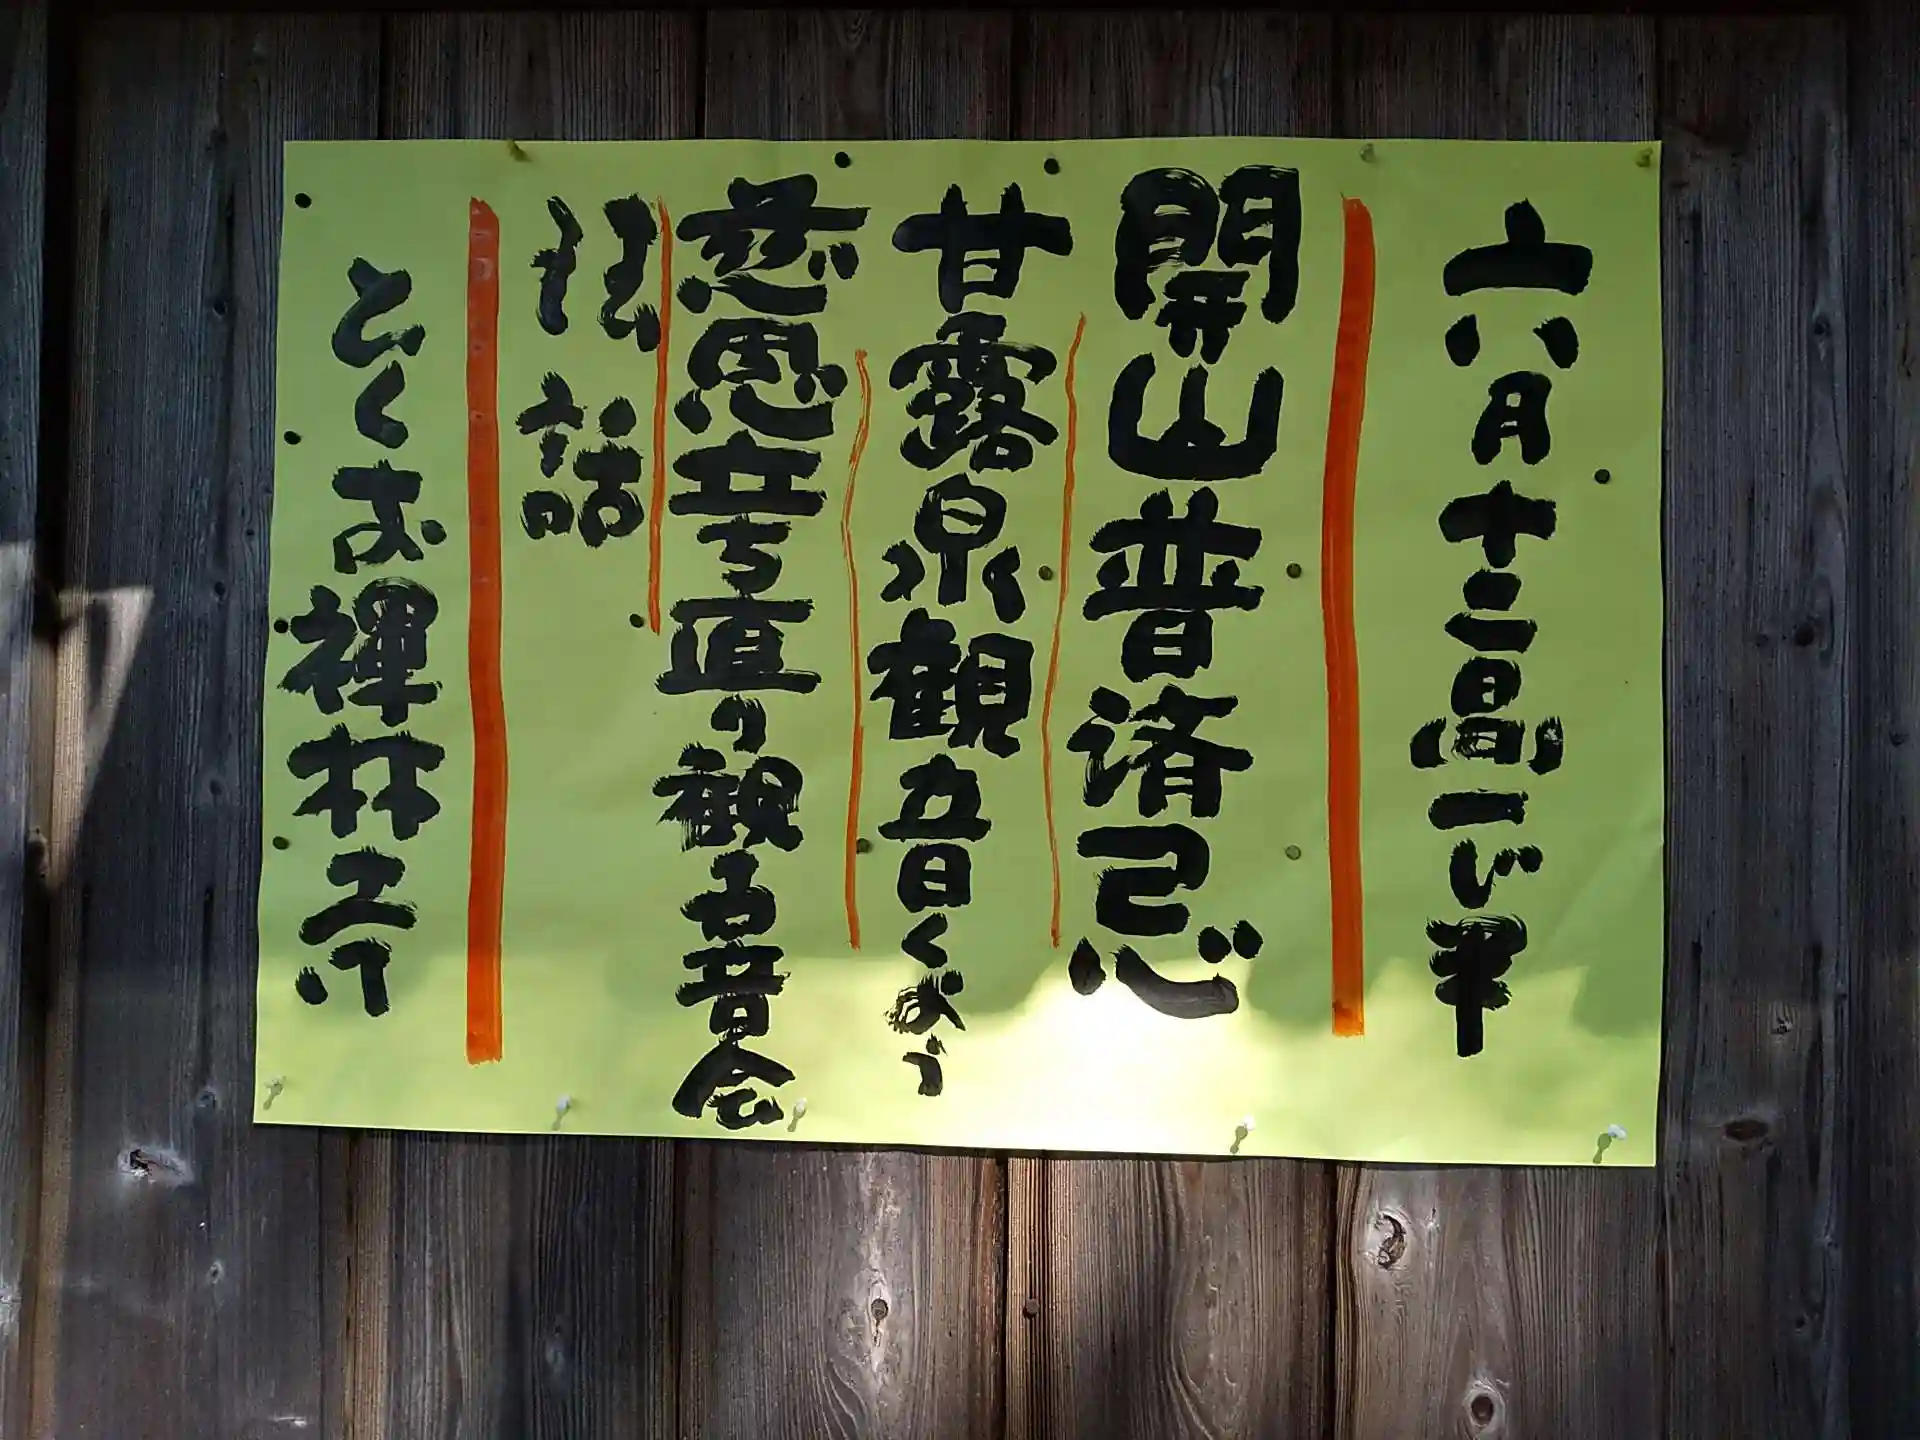 六月十二日㈰一じ半
開山普済忌
甘露泉観音くよう
慈恩立ち直り観音会
法話
とくお禅林エけ